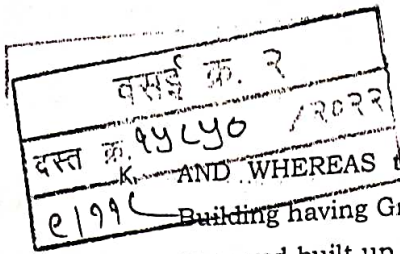 वसई क्र. २
दस्त क्र. १५८५० / २०२२
९ | ११८
K. AND WHEREAS
Building having Gr
built up